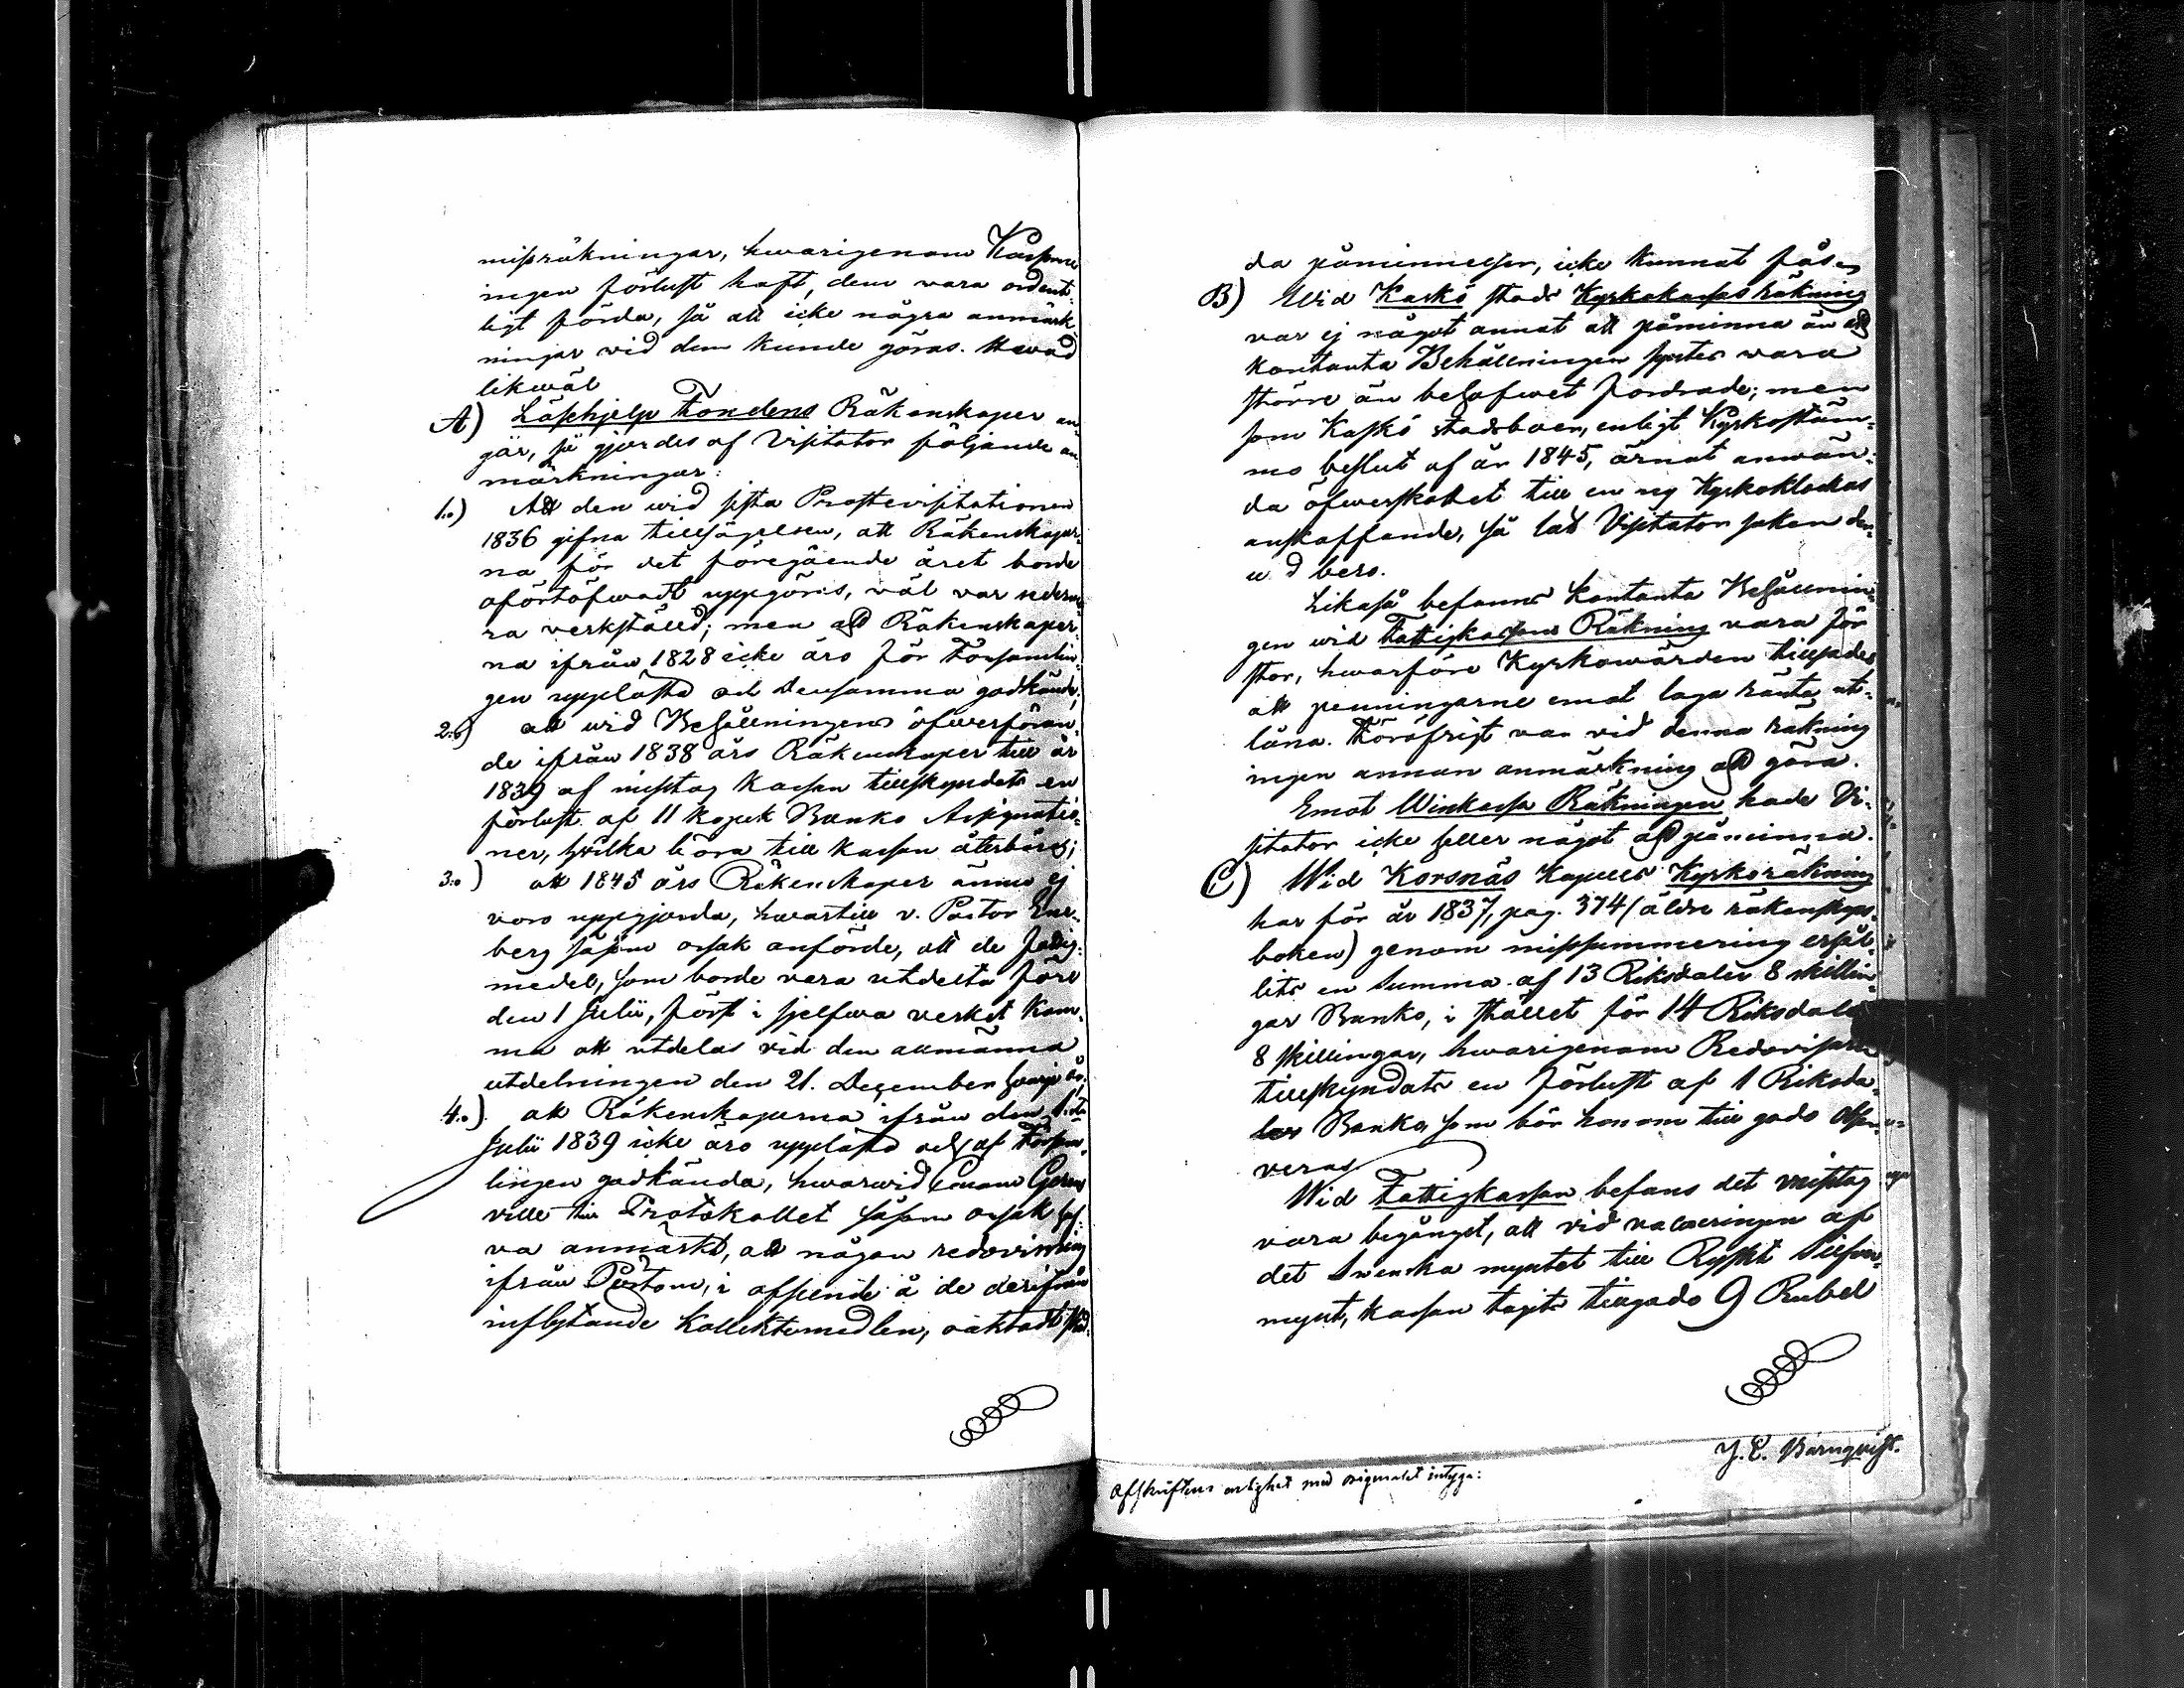 missräkningar, hwarigenom Kassorne
ingen förlust haft, dem vara ordent-
ligt förda, så att icke några anmärk-
ningar vid dem kunde göras. Hwad
likwäl
A) Läsehjelps Fondens Räkenskaper an-
går, så gjordes af Visitator följande an-
märkningar:
1:o) Att den wid sista Prostevisitationen
1836 gifna tillsägelsen, att Räkenskaper-
na för det föregående året borde
oförtöfwadt uppgöras, väl var nederme-
ra verkställd; men att Räkenskaper-
na ifrån 1828 icke äro för Församlin-
gen upplästa och densamma godkände,
2:o) att wid Behållningens öfwerföran-
de ifrån 1838 års Räkenskaper till år
1839 af misstag Kassan tillskyndats en
förlust af 11 kopek Banko Assignatio-
ner, hvilka böra till kassan återbäras;
3:o) att 1845 års Räkenskaper ännu ej
voro uppgjorda, hwartill v. Pastor
berg såsom orsak anförde, att de fattig-
medel, som borde vara utdelta före
den 1 Julii, först i sjelfwa verket kom-
ma att utdelas vid den allmänna
utdelningen den 21. December hvarje år.
4:o) att Räkenskaperna ifrån den 1:sta
Julii 1839 icke äro upplästa och af Försam-
lingen godkända, hwarwid
ville till Protokollet såsom orsak haf-
va anmärkt, att någon redovisning
ifrån Pastorn, i afseende å de derifrån
inflytande Kollektemedlen, oaktadt sked-
da påminnelser, icke kunnat fås.
B) Wid Kaskö stads Kyrkokassas Räkning
var ej något annat att påminna än att
kontanta Behållningen syntes vara
större än behofwet fordrade; men
som Kaskö stadsboer, enligt Kyrkostäm-
mo beslut af år 1845, ärnat anwän-
da öfwerskottet till en ny Kyrkoklockas
anskaffande, så lät Visitator saken der-
wid bero.
Likaså befanns Kontanta Behållnin-
gen wid Fattigkassans Räkning vara för
stor, hwarföre Kyrkowärden tillsades
att penningarne emot laga ränta ut-
låna. Föröfrigt var vid denna räkning
ingen annan anmärkning att göra.
Emot Winkassa Räkningen hade Vi-
sitator icke heller något att påminna.
C) Wid Korsnäs Kapells Kyrkoräkning
har för år 1837, pag. 374 (äldre räkenskaps-
boken) genom missummering erhål-
lits en Summa af 13 Riksdaler 8 skillin-
gar Banko, i stället för 14 Riksdaler
8 skillingar, hwarigenom Redovisaren
tillskyndats en förlust af 1 Riksda-
ler Banko, som bör honom till godo obser-
veras.
Wid Fattigkassan befans det misstag
vara begånget, att vid valveringen af
det Swenska myntet till Ryskt Silfwer-
mynt, kassan tagits tillgodo 9 Rubel
J. E. Bärnqvist.
Afskriftens riktighet med originalet intyga: